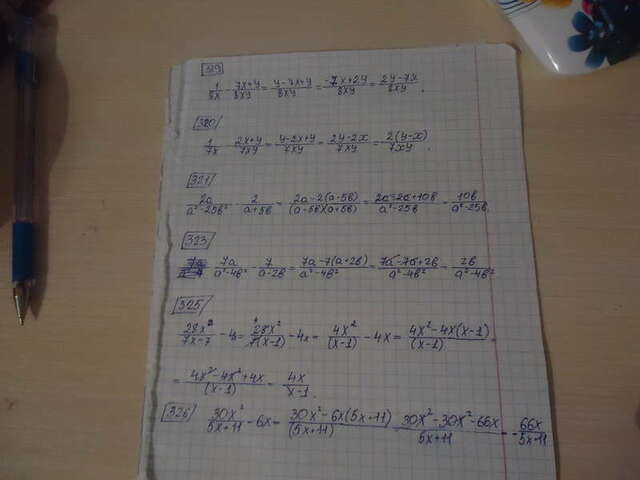 319
1/8x - 7x+y/8xy = y-7x+y/8xy = -7x+2y/8xy = 2y-7x/8xy.
320
1/7x - 2x+y/7xy = y-2x+y/7xy = 2y-2x/7xy = 2(y-x)/7xy.
321
2a/a²-25b² - 2/a+5b = 2a-2(a-5b)/(a-5b)(a+5b) = 2a-2a+10b/a²-25b = 10b/a²-25b.
323
7a/a²-4b² - 7/a-2b = 7a-7(a+2b)/a²-4b² = 7a-7a+2b/a²-4b² = 2b/a²-4b²
325
28x²/7x-7 - 4x = 28x²/7(x-1) - 4x = 4x²/(x-1) - 4x = 4x²-4x(x-1)/(x-1) =
= 4x²-4x²+4x/(x-1) = 4x/x-1.
326 30x²/5x+11 - 6x = 30x²-6x(5x+11)/(5x+11) = 30x²-30x²-66x/5x+11 = -66x/5x+11